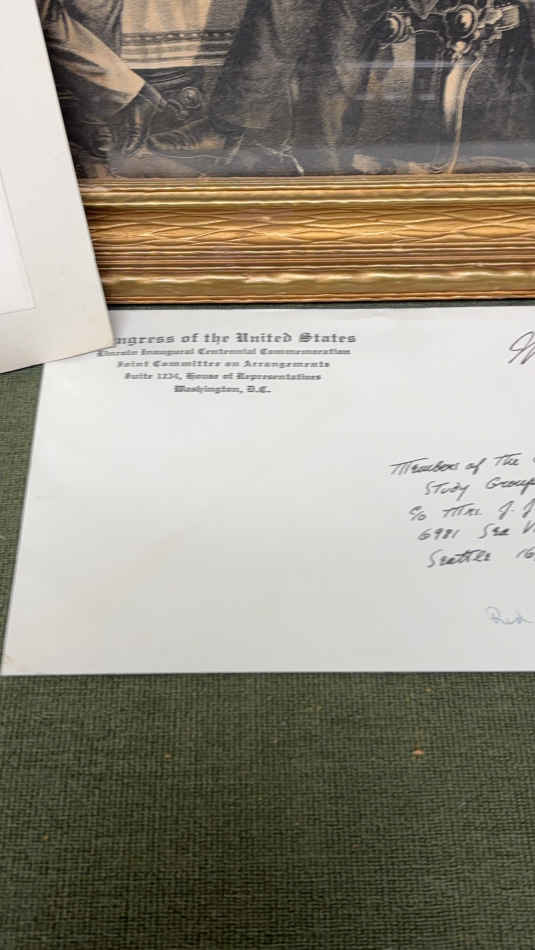 ngress of the United States
Lincoln Inaugural Centennial Commemoration
Joint Committee on Arrangements
Suite 1234, House of Representatives
Washington, D.C.
Members of The
Study Group
c/o Mrs. J. J
6981 Sea V
Seattle 16